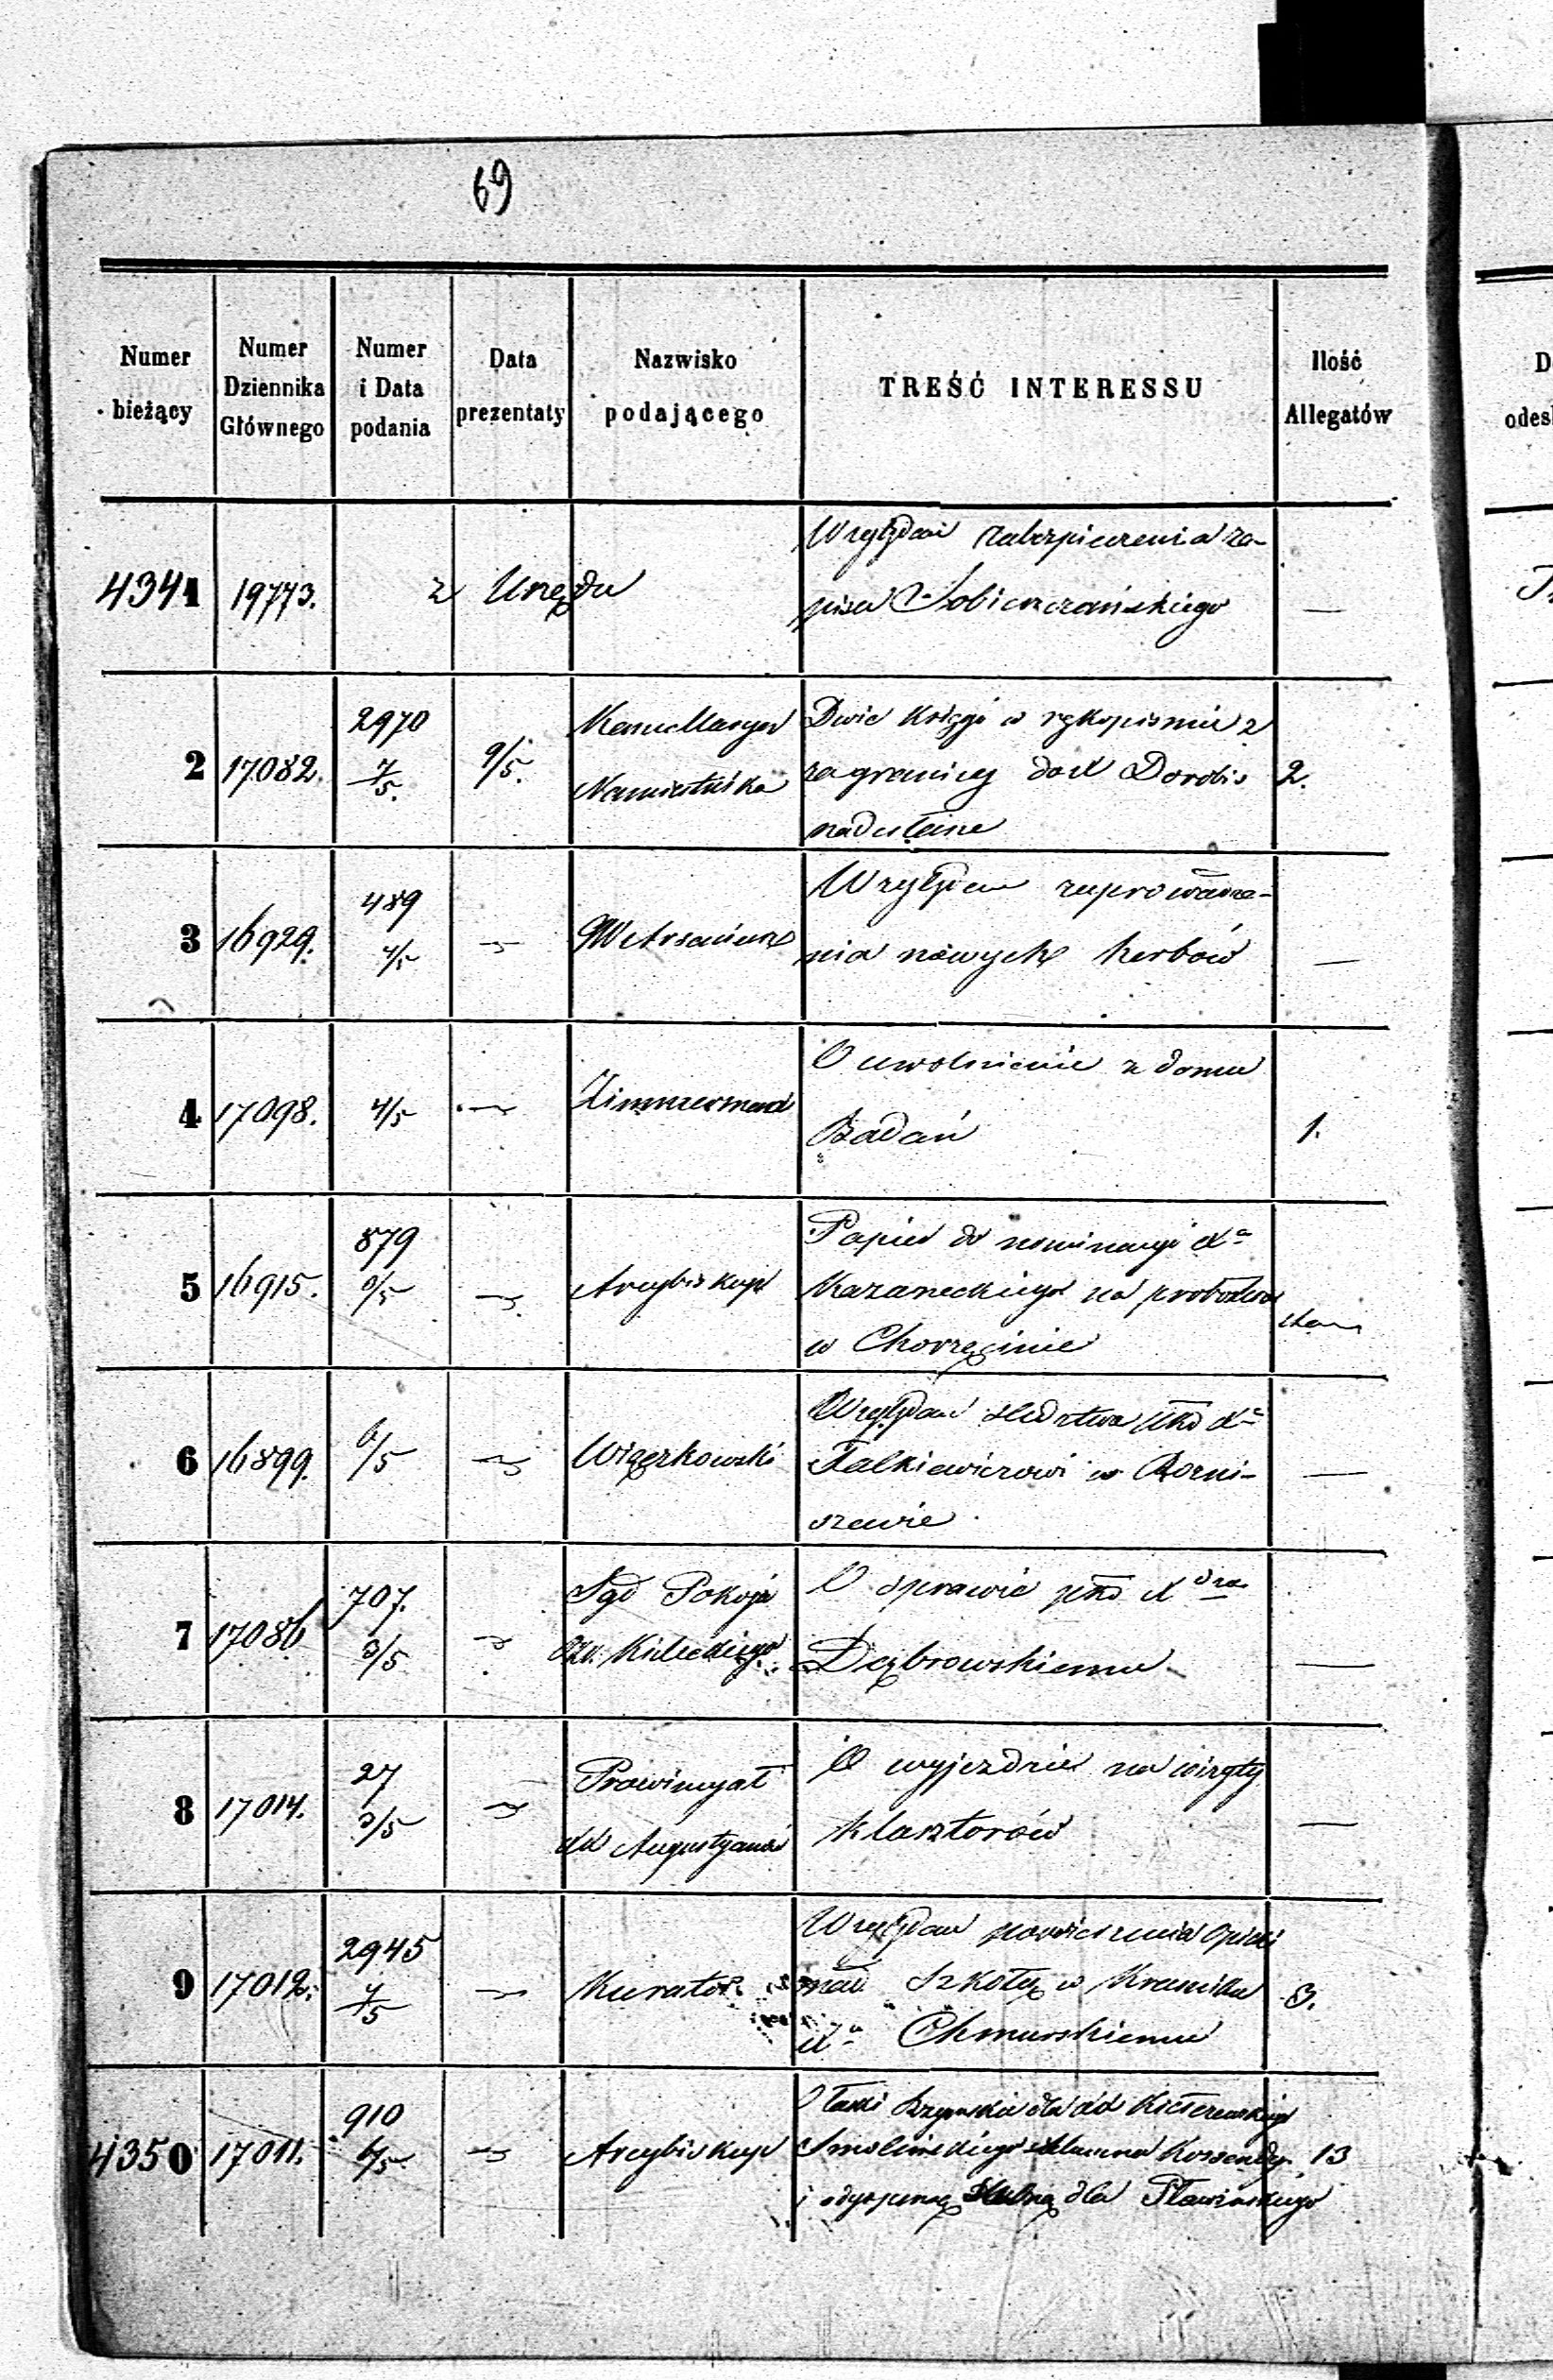 69
Numer bieżący | Numer Dziennika Głównego | Numer i Data podania | Data prezentaty | Nazwisko podającego | TREŚĆ INTERESSU | Ilość Allegatów
4341 | 19773. | z Urzędu | Względem zabezpieczenia za-
pisu Sobieszczańskiego | —
2 | 17082. | 2970 7/5. | 9/5. | Kancellarya Namiestnika | Dwie księgi w rękopiśmie z
zagranicy dox Dorobis
nadesłane | 2.
3 | 16929. | 489 4/5 | Względem zaprowadze-
nia nowych herbów | —
4 | 17098. | 4/5 | Zimmerman | O uwolnienie z domu
Badań | 1.
5 | 16915. | 879 6/5 | Arcybiskup | Papier do nominacyi Xa
Kazaneckiego na probostwo
w Chorzęcinie
6 | 16899. | 6/5 | Wiązkowski | Względem śledztwa pko Xa
Falkiewiczowi w Borni-
szewie | —
7 | 17086 | 707. 3/5 | Sąd Pokoju
Kieleckiego | O sprawie pko X
Dąbrowskiemu | —
8 | 17014. | 27 3/5 | Prowincyał
XX Augustyanów | O wyjezdzie na wizytę
klasztorów | —
9 | 17012. | 2945 7/5 | Kurator | Względem powierzenia opieki
nad Szkołą w
Xa Chmurskiemu | 3.
4350 | 17011. | 910 6/5 | Arcybiskup | O łaski Rzymskie dla XX
Smolińskiego
i dyspensę ślubną dla Sławińskiego | 13